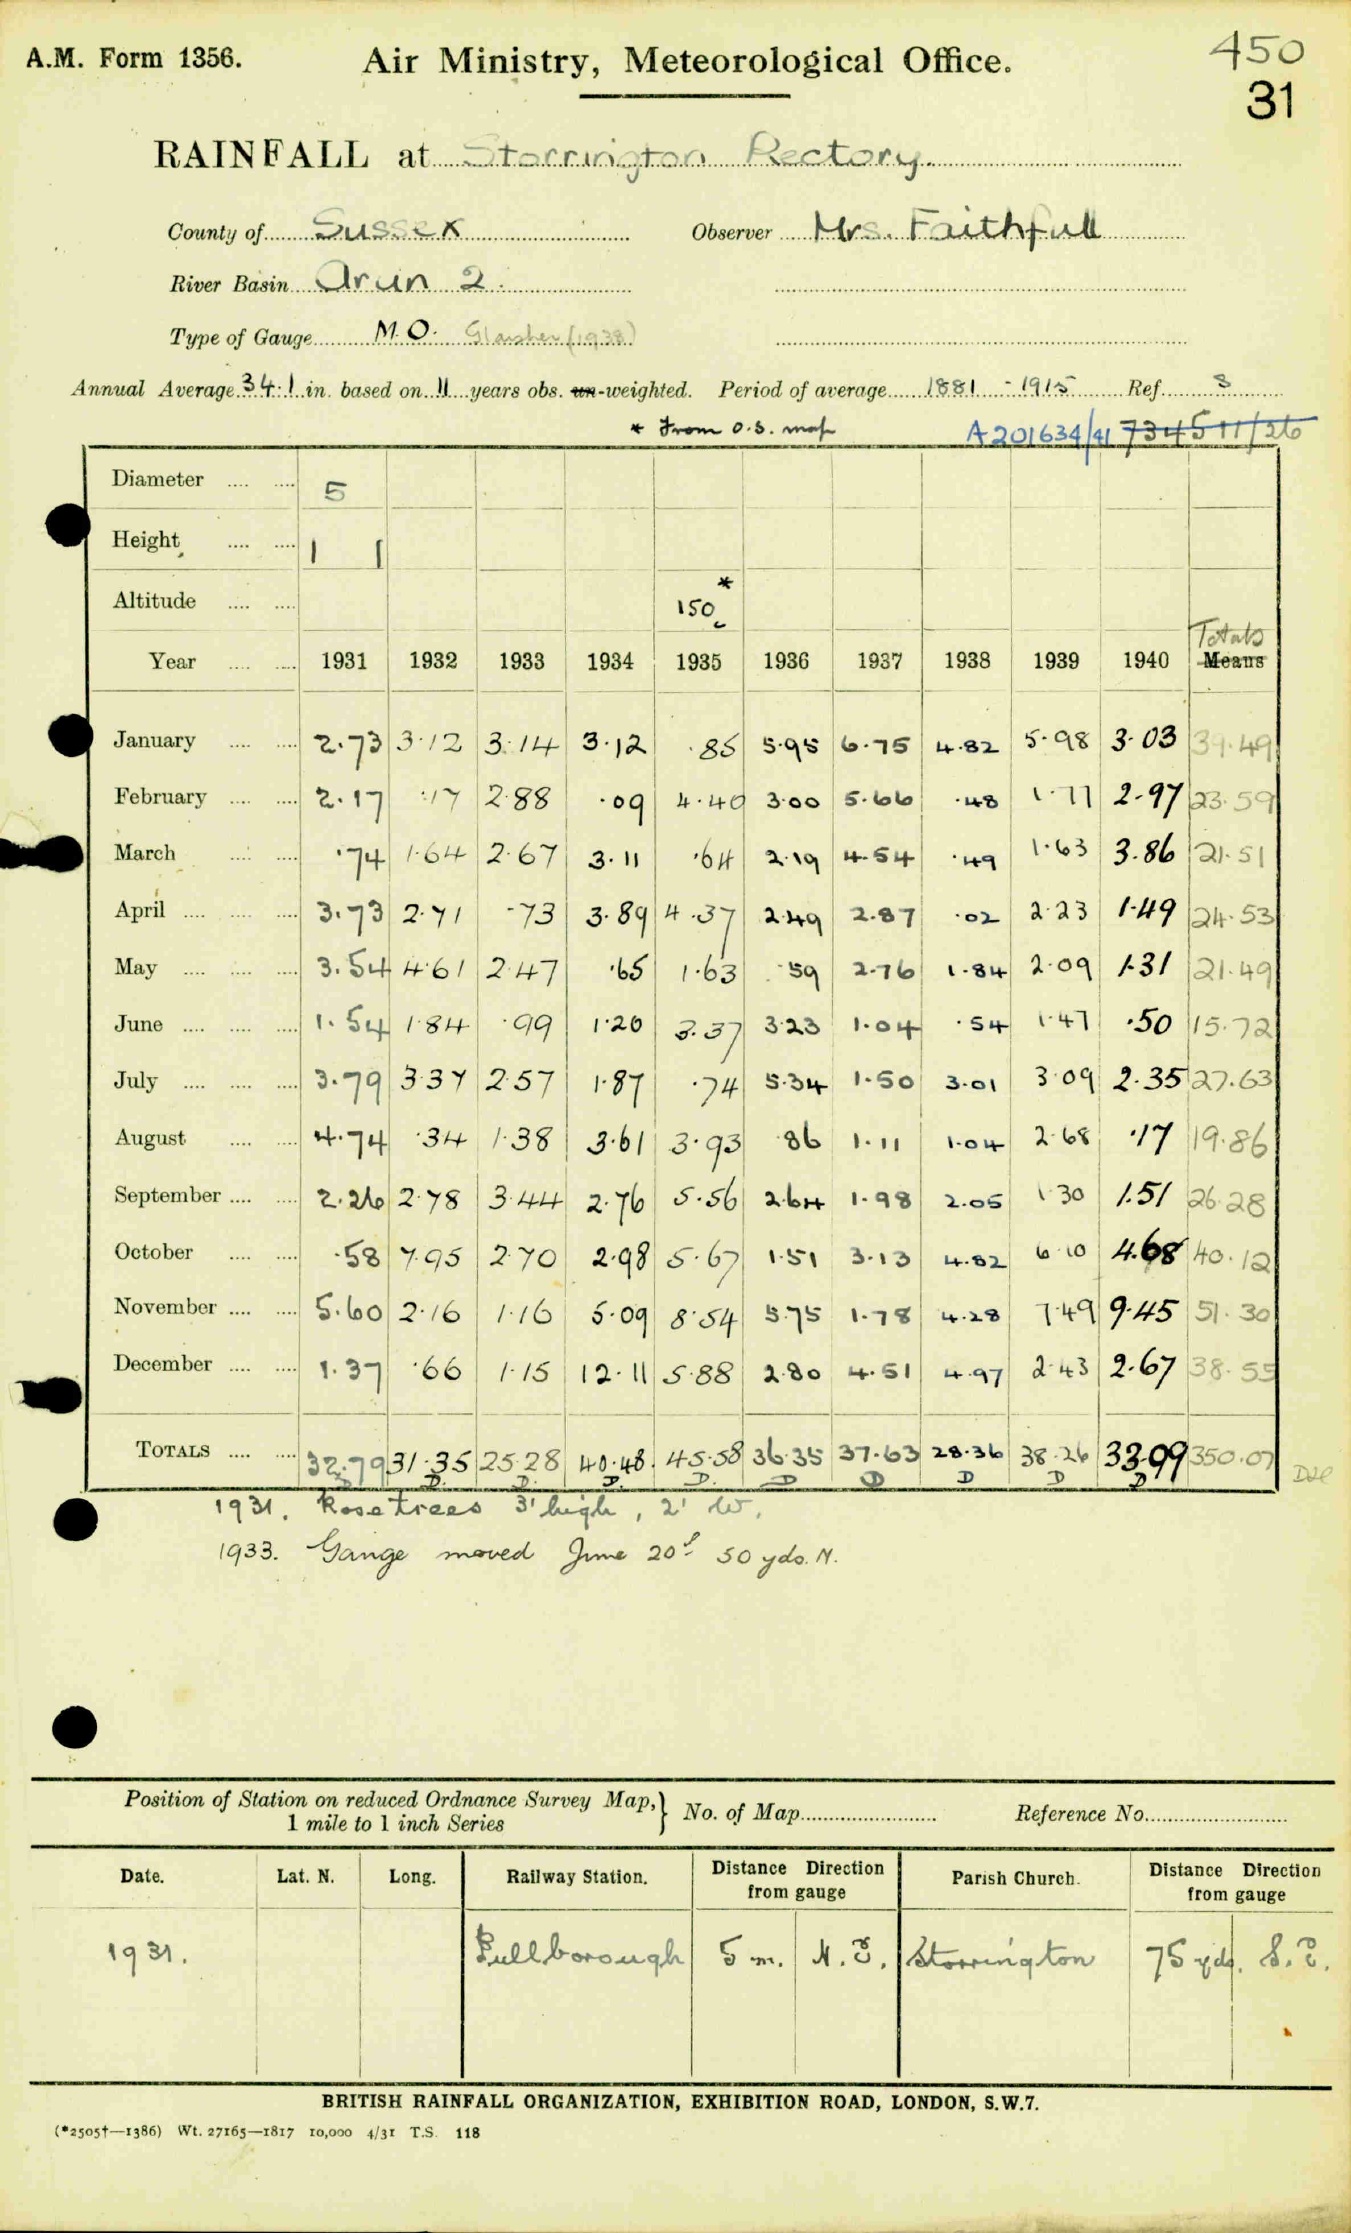 A.M. Form 1356.
Air Ministry, Meteorological Office.
450
31
RAINFALL at Storrington Rectory.
County of Sussex Observer Mrs. Faithfull
River Basin Arun 2.
Type of Gauge M.O. Glaisher (1938)
Annual Average 34.1 in. based on 11 years obs. un-weighted. Period of average 1881 - 1915 Ref. S
* From O.S. map A201634/41 734511/26
Diameter 5
Height 1 1
Altitude 150 *
Totals
Year 1931 1932 1933 1934 1935 1936 1937 1938 1939 1940 Means
January 2.73 3.12 3.14 3.12 .85 5.95 6.75 4.82 5.98 3.03 39.49
February 2.17 .17 2.88 .09 4.40 3.00 5.66 .48 1.77 2.97 23.59
March .74 1.64 2.67 3.11 .64 2.19 4.54 .49 1.63 3.86 21.51
April 3.73 2.71 .73 3.89 4.37 2.49 2.87 .02 2.23 1.49 24.53
May 3.54 4.61 2.47 .65 1.63 .59 2.76 1.84 2.09 1.31 21.49
June 1.54 1.84 .99 1.20 3.37 3.23 1.04 .54 1.47 .50 15.72
July 3.79 3.37 2.57 1.87 .74 5.34 1.50 3.01 3.09 2.35 27.63
August 4.74 .34 1.38 3.61 3.93 .86 1.11 1.04 2.68 .17 19.86
September 2.26 2.78 3.44 2.76 5.56 2.64 1.98 2.05 1.30 1.51 26.28
October .58 7.95 2.70 2.98 5.67 1.51 3.13 4.82 6.10 4.68 40.12
November 5.60 2.16 1.16 5.09 8.54 5.75 1.78 4.28 7.49 9.45 51.30
December 1.37 .66 1.15 12.11 5.88 2.80 4.51 4.97 2.43 2.67 38.55
TOTALS 32.79 31.35 25.28 40.48 45.58 36.35 37.63 28.36 38.26 33.99 350.07
D D. D. D. D. D D D D D
1931. Rose trees 3' high, 2' W.
1933. Gauge moved June 20th 50 yds. N.
Position of Station on reduced Ordnance Survey Map, 1 mile to 1 inch Series } No. of Map Reference No.
Date. Lat. N. Long. Railway Station. Distance Direction from gauge Parish Church. Distance Direction from gauge
1931. Pullborough 5 m. N.E. Storrington 75 yds. S.E.
BRITISH RAINFALL ORGANIZATION, EXHIBITION ROAD, LONDON, S.W.7.
(*2505†—1386) Wt. 27165—1817 10,000 4/31 T.S. 118